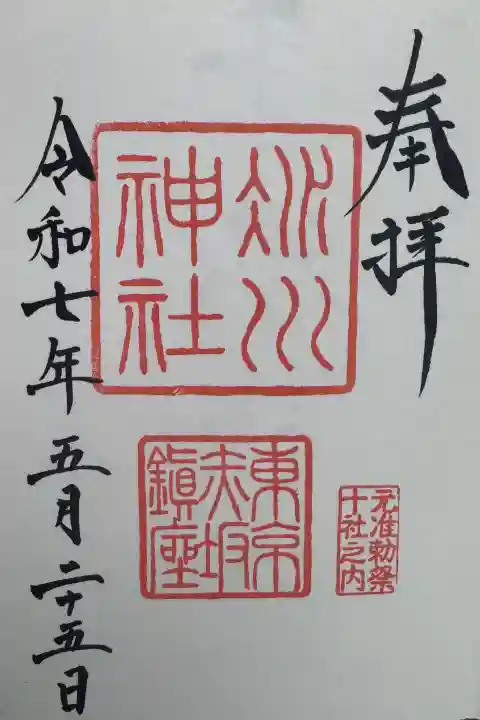 奉拝
氷川
神社
東京
赤坂
鎮座
元准勅祭
十社之内
令和七年五月二十五日